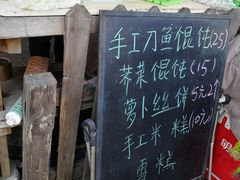 手工刀鱼馄饨(25)
荠菜馄饨(15)
萝卜丝饼5元2个
手工米糕(10元)
雪糕